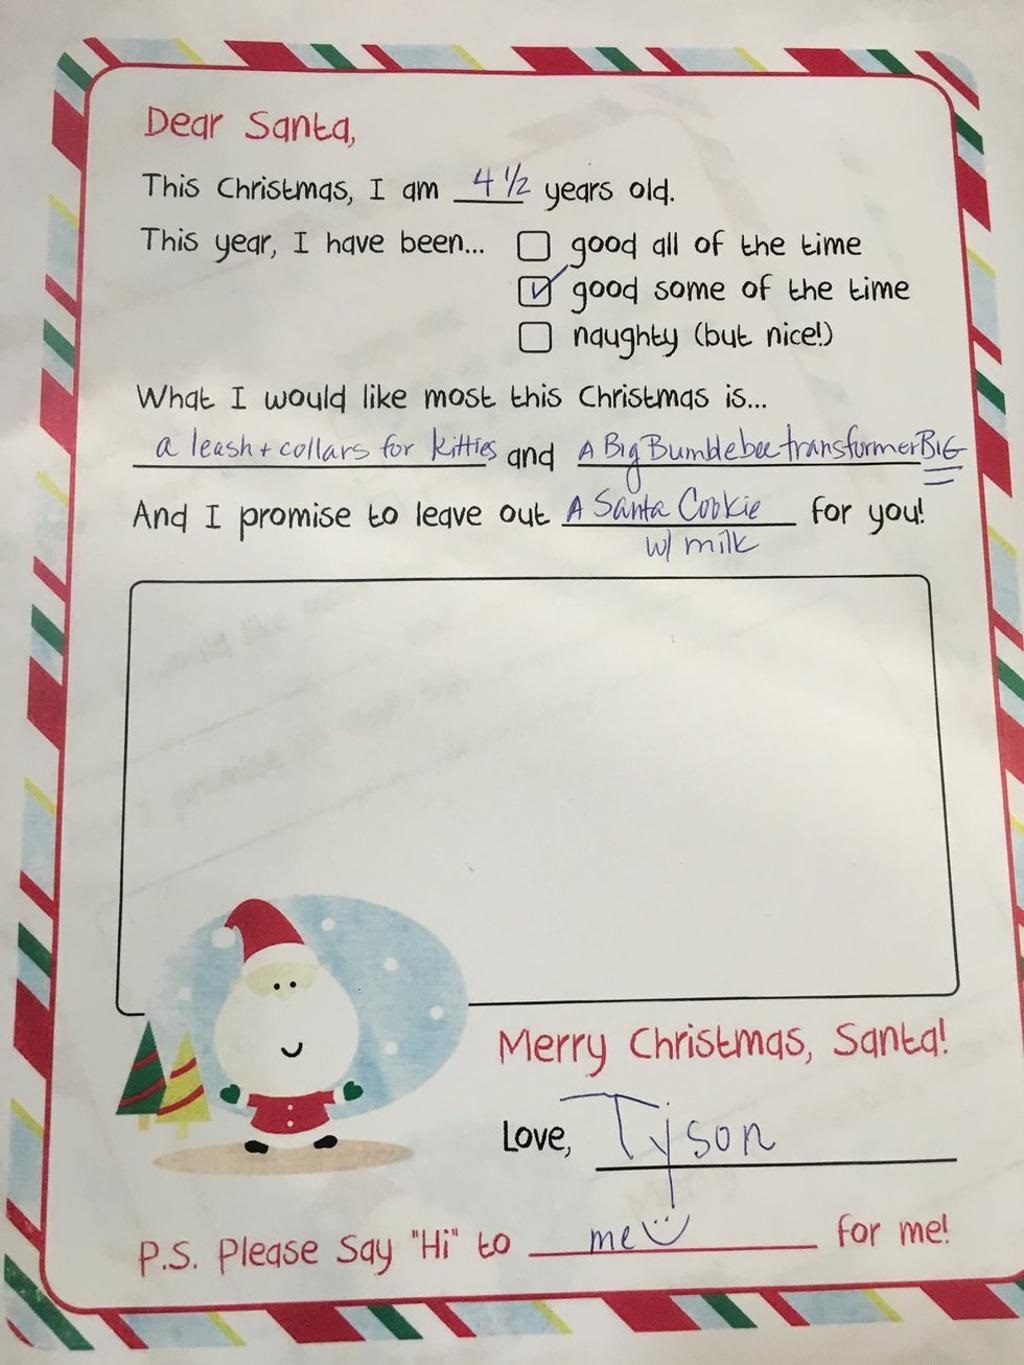 Dear Santa,
This Christmas, I am 4 1/2 years old.
This year, I have been... good all of the time
good some of the time
naughty (but nice!)
What I would like most this Christmas is...
a leash + collars for kitties and A Big Bumblebee transformer BIG
And I promise to leave out A Santa Cookie for you!
w/ milk
Merry Christmas, Santa!
Love, Tyson
P.S. Please Say "Hi" to me for me!